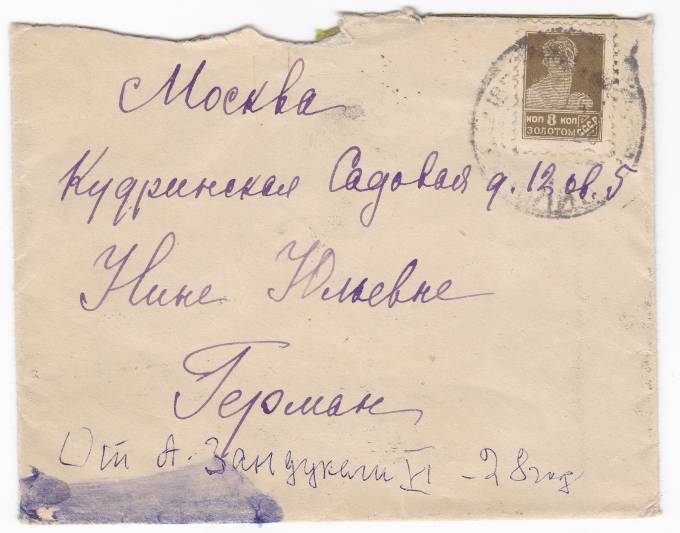 КОП 8 КОП
ЗОЛОТОМ СССР
Москва
Кудринская Садовая д. 12 кв. 5
Нине Юльевне
Герман
От А. Зандукели VI - 28 год